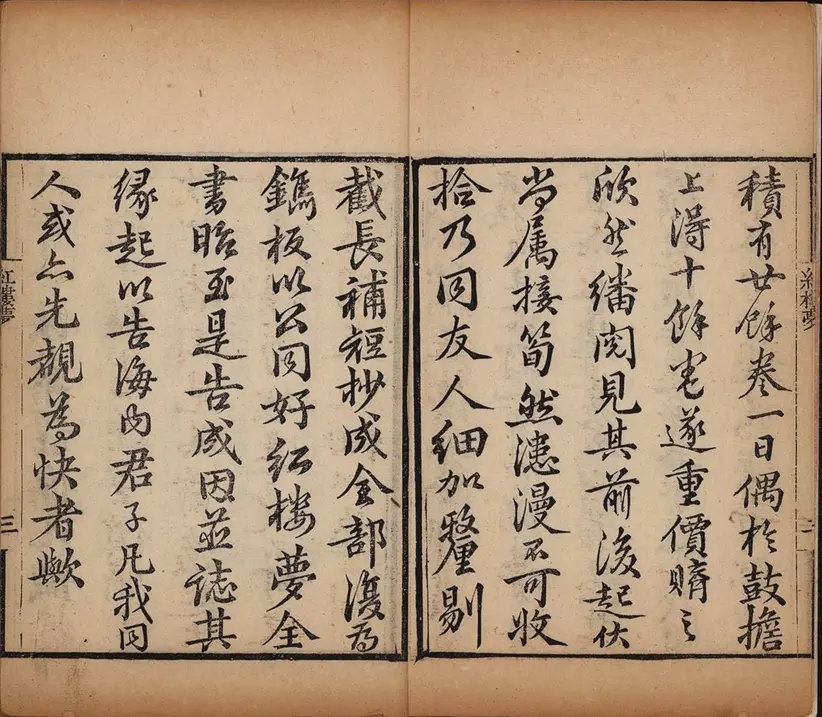 積有廿餘卷一日偶於鼓擔
上得十餘卷遂重價購之
欣然繙閱見其前後起伏
尚属接筍然漶漫不可收
拾乃同友人細加釐剔
截長補短抄成全部復為
鐫板以公同好紅樓夢全
書始至是告成因並誌其
緣起以告海内君子凡我同
人或亦先覩為快者歟
紅樓夢
三